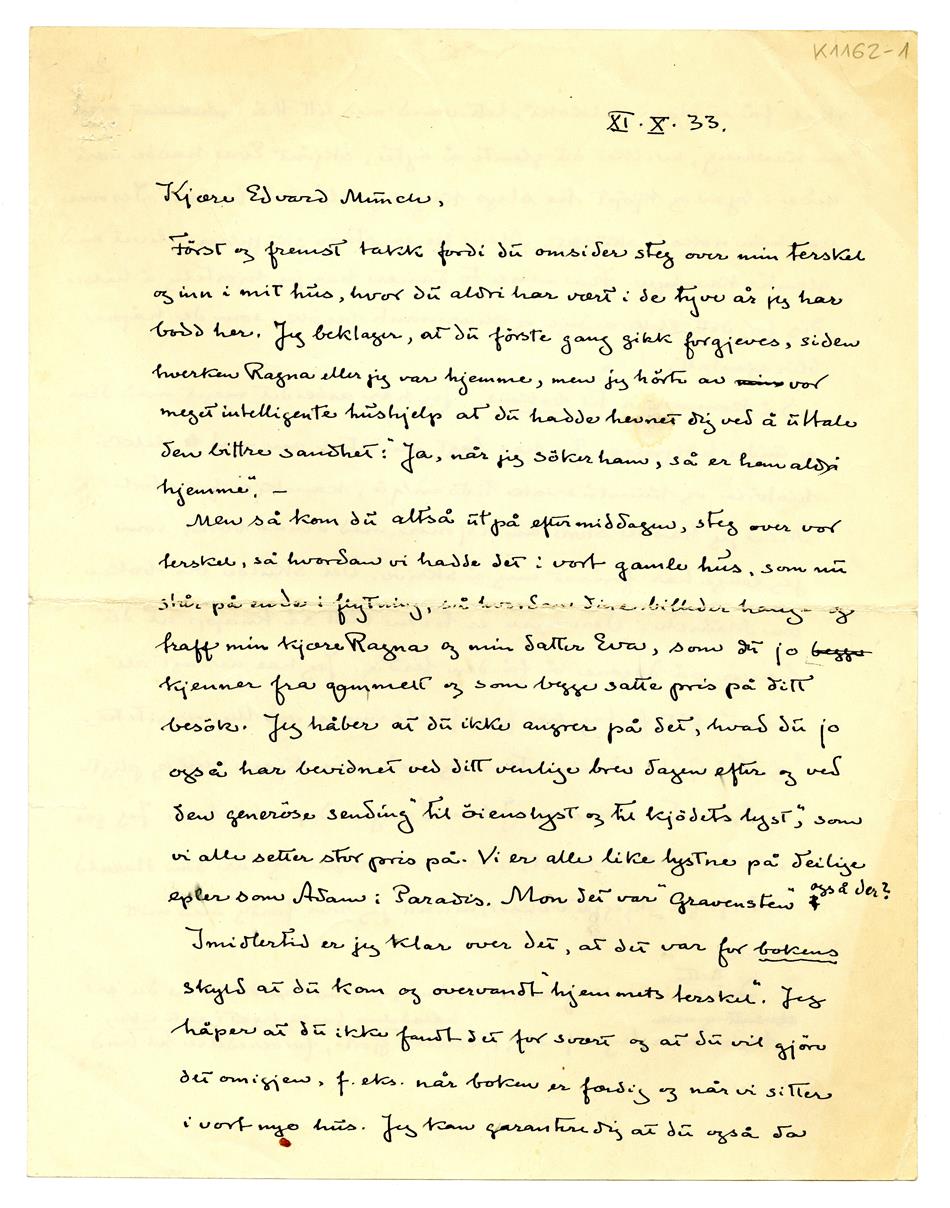 K1162-1
XI. X. 33.
Kjære Edvard Munch,
Först og fremst takk fordi du omsider steg over min terskel
og inn i mit hus, hvor du aldri har vært i de tyve år jeg har
bodd her. Jeg beklager, at du förste gang gikk forgjeves, siden
hverken Ragna eller jeg var hjemme, men jeg hörte av min vor
meget intelligente hushjelp at du hadde hevnet dig ved å uttale
den bittre sandhet: "Ja, når jeg söker ham, så er han aldri
hjemme". —
Men så kom du altså ut på eftermiddagen, steg over vor
terskel, så hvordan vi hadde det i vort gamle hus, som nu
står på ende i flytning, så hvordan dine billeder hange og
traff min kjære Ragna og min datter Eva, som du jo begge
kjenner fra gammelt og som begge satte pris på ditt
besök. Jeg håber at du ikke angrer på det, hvad du jo
også har bevidnet ved ditt venlige brev dagen efter og ved
den generöse sending "til öienslyst og til kjödets lyst", som
vi alle setter stor pris på. Vi er alle like lystne på deilige
epler som Adam i Paradis. Mon det var "Gravensten" også der?
Imidlertid er jeg klar over det, at det var for bokens
skyld at du kom og overvandt "hjemmets terskel". Jeg
håper at du ikke fandt det for svært og at du vil gjöre
det omigjen, f. eks. når boken er færdig og når vi sitter
i vort nye hus. Jeg kan garantere dig at du også da